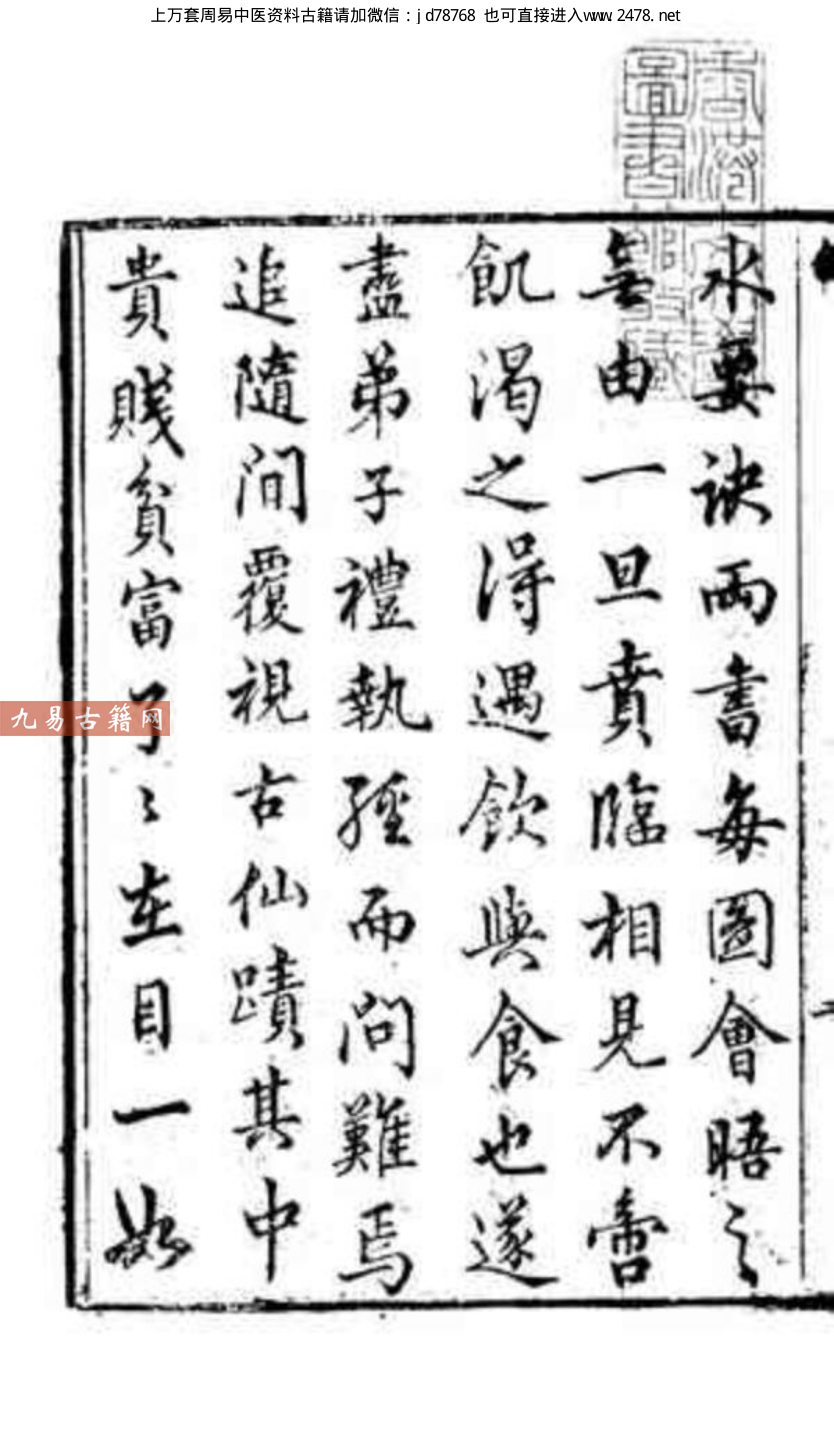 上万套周易中医资料古籍请加微信：jd78768 也可直接进入www.2478.net
水要诀兩書每圖會晤之
無由一旦賁臨相見不啻
飢渴之得遇飲與食也遂
盡弟子禮執經而問難焉
追隨間覆視古仙蹟其中
貴賤貧富了〻在目一如
九易古籍网